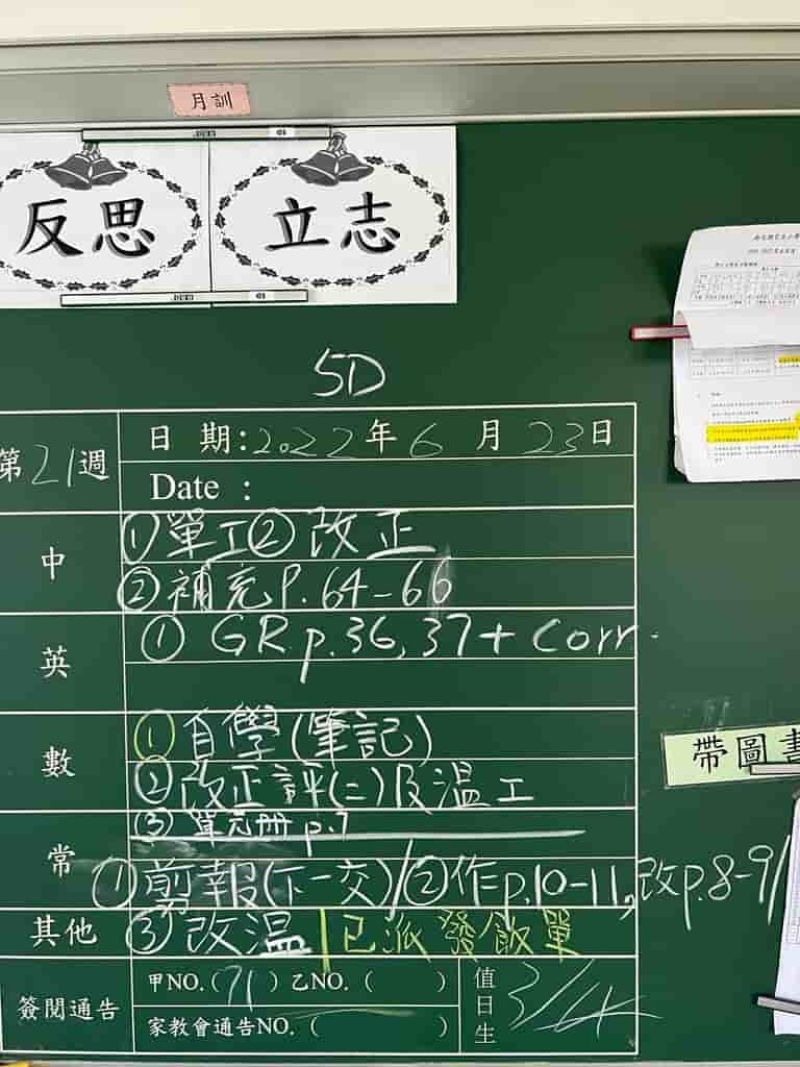 月訓
反思 立志
5D
第21週
日期:2022年6月23日
Date :
中
①單工② 改正
②補充P.64-66
英
① GR p.36,37+ Corr.
數
①自學(筆記)
②改正評(二)及溫工
(3) 單元册 p.7
常
①剪報(下一交)/②作p.10-11,改p.8-9/
③改溫
其他
已派發飯單
簽閱通告
甲NO.(71) 乙NO. ( )
家教會通告NO. ( )
值日生
3/4
帶圖書